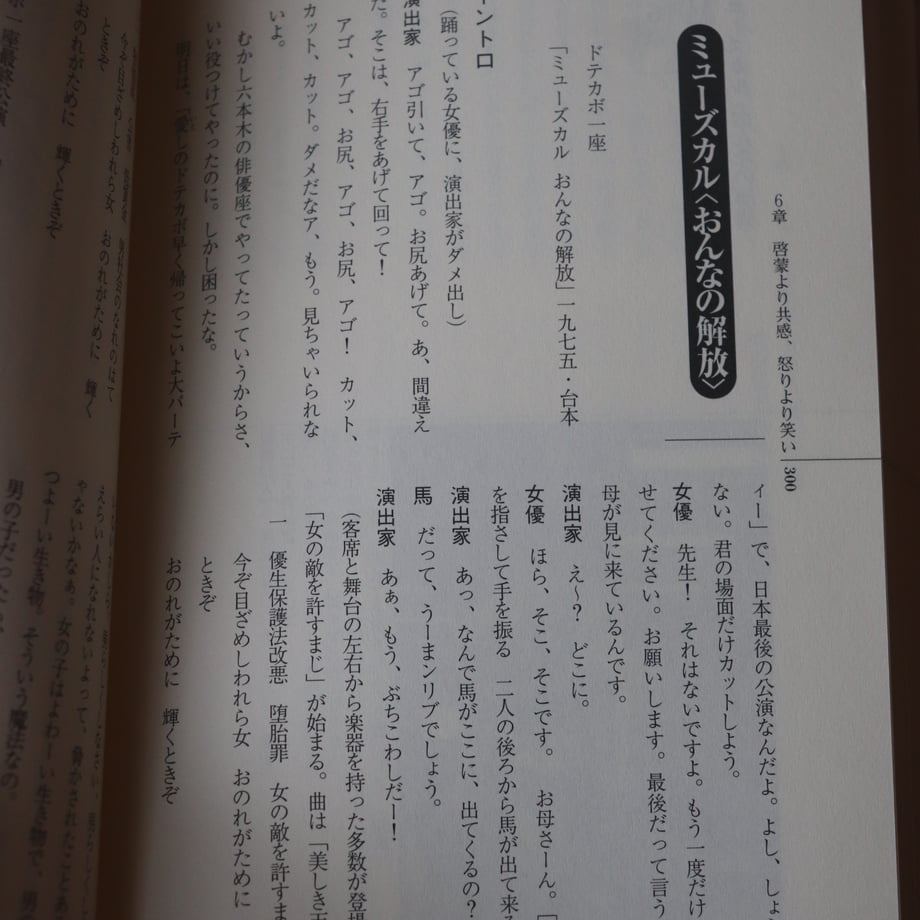 6章 啓蒙より共感、怒りより笑い 300
ミューズカル〈おんなの解放〉
ドテカボ一座
「ミューズカル おんなの解放」一九七五・台本
イントロ
(踊っている女優に、演出家がダメ出し)
演出家 アゴ引いて、アゴ。お尻あげて。あ、間違え
た。そこは、右手をあげて回って!
アゴ、アゴ、お尻、アゴ、お尻、アゴ! カット、
カット、カット。ダメだなア、もう。見ちゃいられな
いよ。
むかし六本木の俳優座でやってたっていうからさ、
いい役つけてやったのに。しかし困ったな。
明日は、「愛しのドテカボ早く帰ってこいよ大パーテ
ィー」で、日本最後の公演なんだよ。よし、しょ
ない。君の場面だけカットしよう。
女優 先生! それはないですよ。もう一度だけ
せてください。お願いします。最後だって言う
母が見に来ているんです。
演出家 え〜? どこに。
女優 ほら、そこ、そこです。 お母さーん。
を指さして手を振る 二人の後ろから馬が出て来る
演出家 あっ、なんで馬がここに、出てくるの?
馬 だって、うーまンリブでしょう。
演出家 あぁ、もう、ぶちこわしだー!
(客席と舞台の左右から楽器を持った多数が登場
「女の敵を許すまじ」が始まる。曲は「美しき天
一 優生保護法改悪 堕胎罪 女の敵を許すま
今ぞ目ざめしわれら女 おのれがために
ときぞ
おのれがために 輝くときぞ
今ぞ目ざめしわれら女 おのれがために 輝く
ときぞ
おのれがために 輝くときぞ
えらい人になれないよって、脅かされたことあ
やないかなぁ。女の子はよわーい生き物で、男
つよーい生き物。そういう魔法なの。